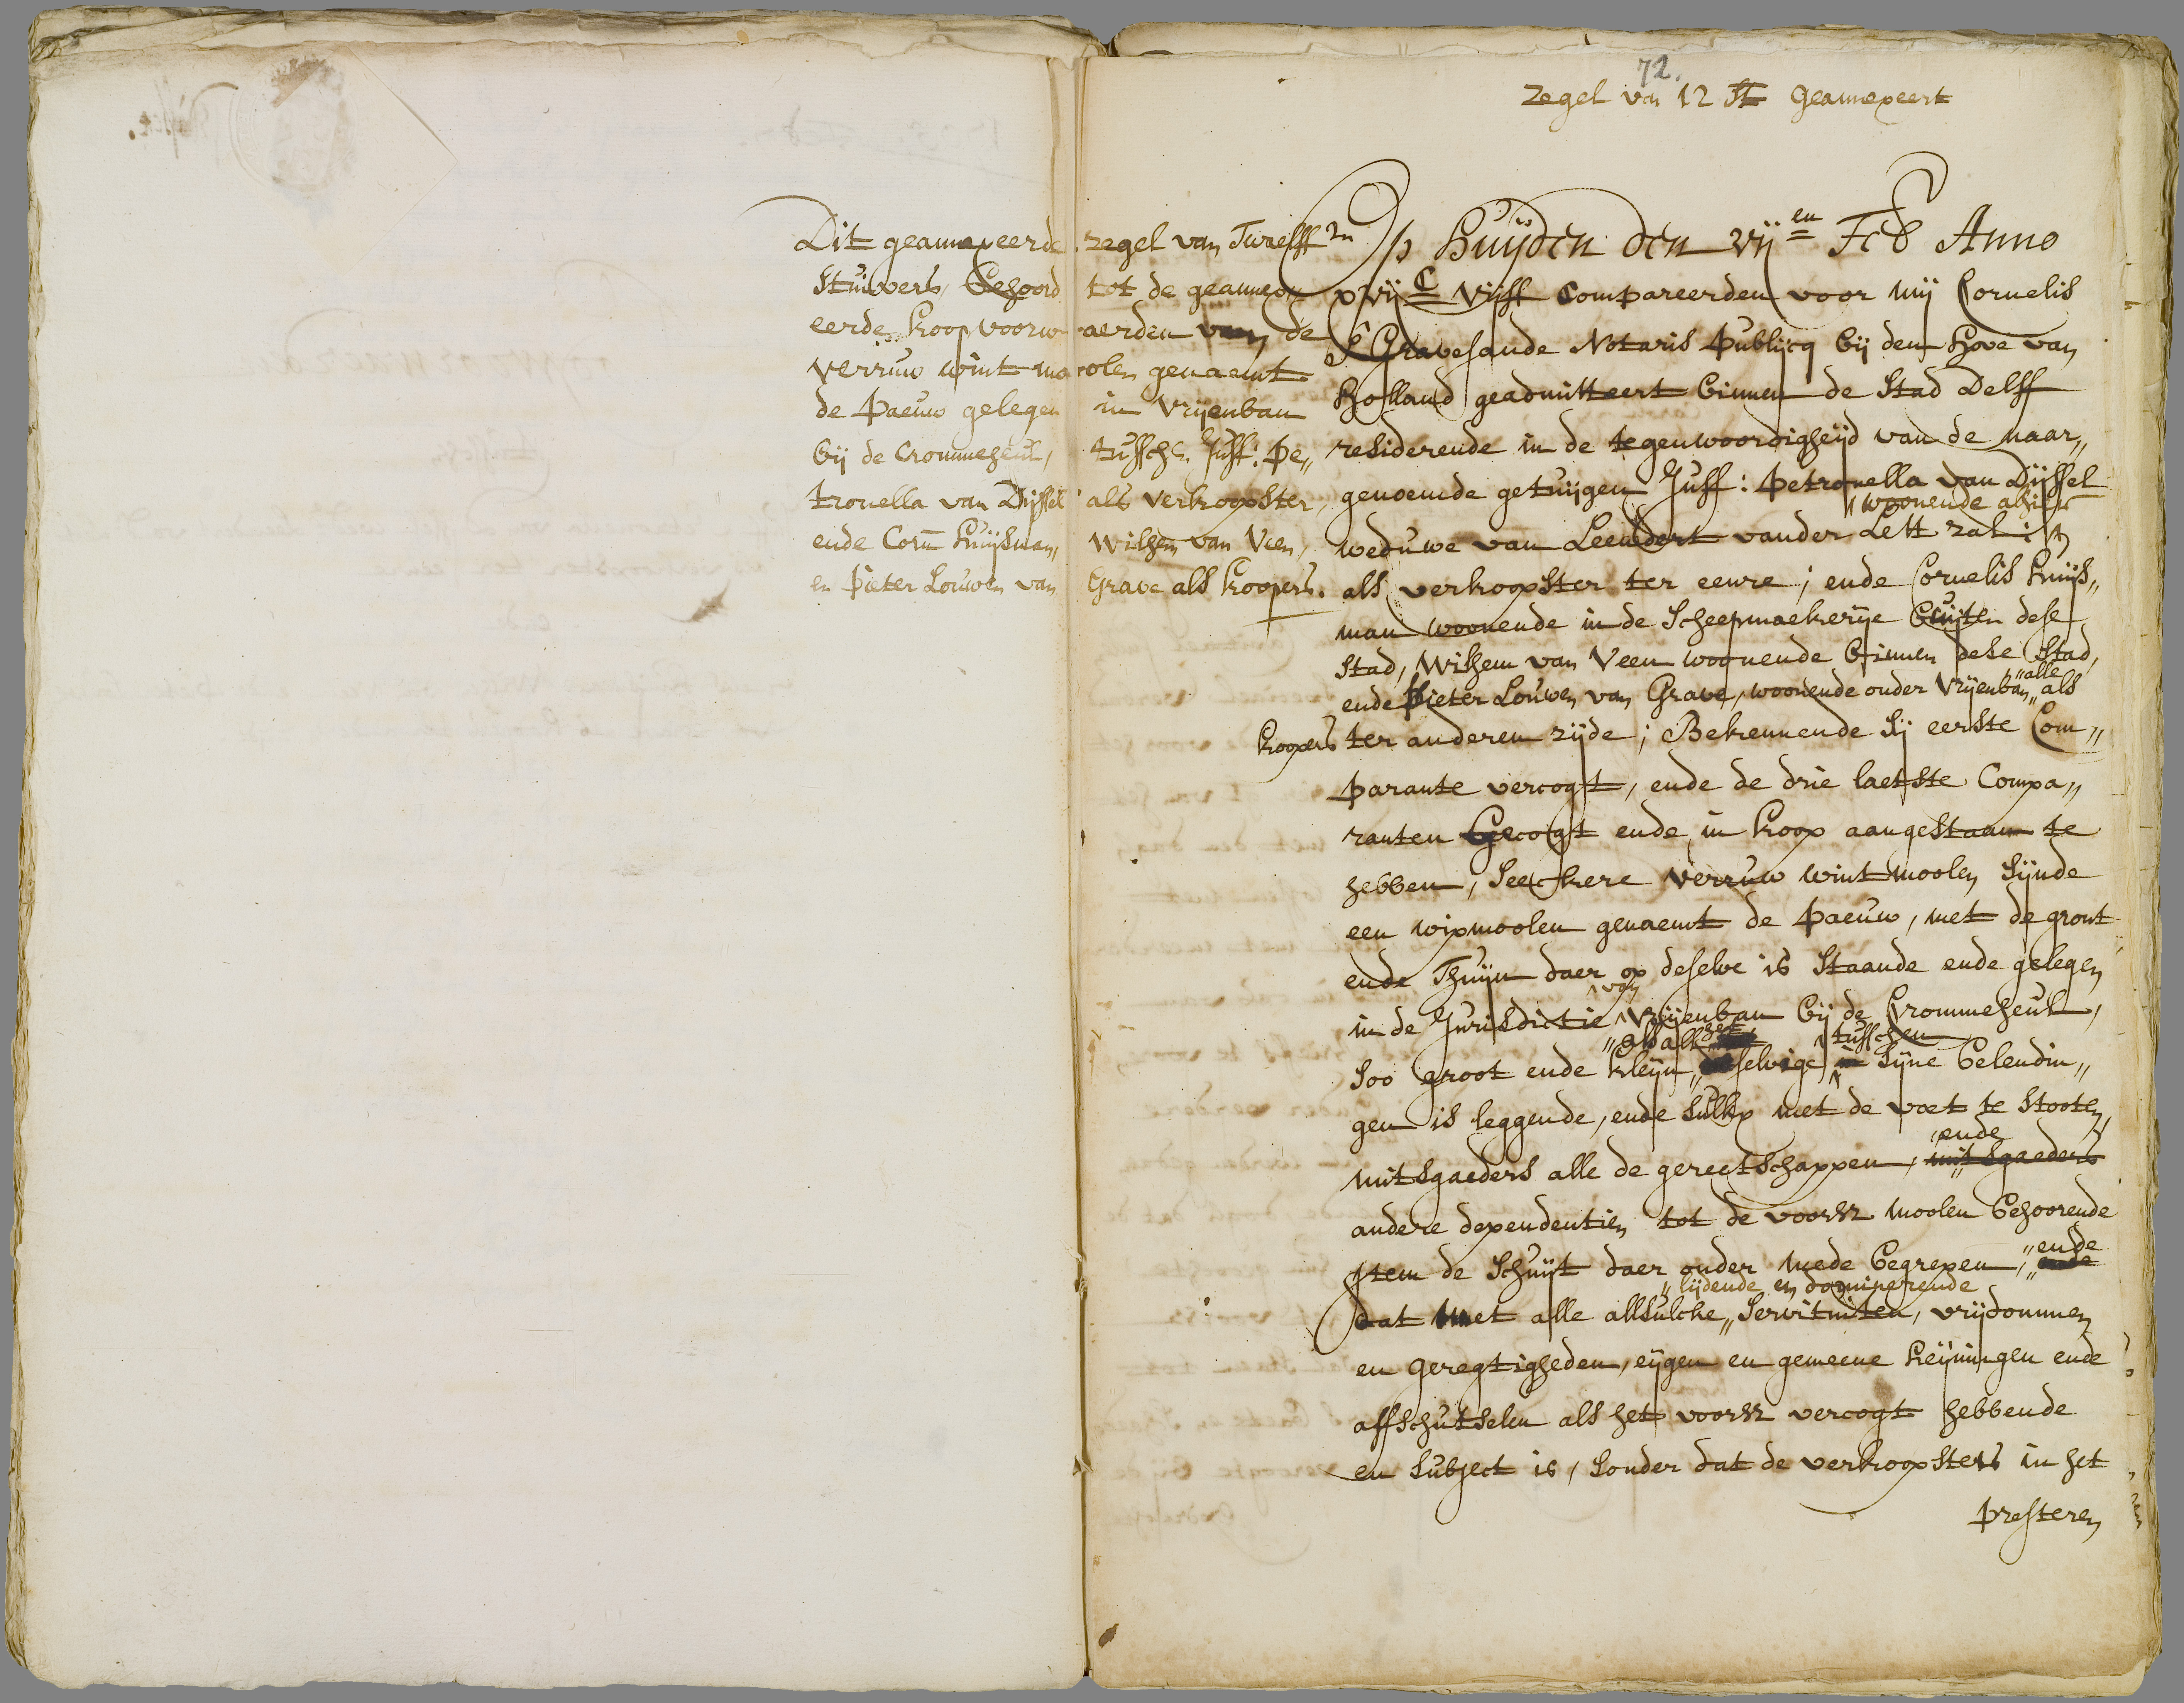 72.
Zegel van 12 St Geannexeert
Dit geannexeerde zegel van Twaelff
Stuivers, behoord tot de geannex
eerde koop voorwaerden van de
verruw wint moolen genaemt
de Paeuw gelegen in Vrijenban
bij de Crommeheul, tusschen Juff: Pe„
tronella van Dijssel als verkoopster,
ende Corn Huijsman, Wilhem van Veen,
en Pieter Louwen van Grave als koopers.
Op Huijden den vij en Feb Anno
xvij C vijff Compareerden voor mij Cornelis
s' Gravesande Notaris Publijcq bij den Hove van
Holland geadmitteert binnen de Stad Delff
residerende in de tegenwoordigheijd van de naar„
genoemde getuijgen Juff: Petronella van Dijssel
woonende alhier
weduwe van Leendert vander Lett zal:
als verkoopster ter eenre; ende Cornelis Huijs„
man woonende in de Scheepmaekerije buijten dese
Stad, Wilhem van Veen woonende binnen dese Stad,
„alle
ende Pieter Louwen van Grave, woonende onder Vrijenban„ als
koopers ter anderen zijde; Bekennende sij eerste Com„
parante vercogt, ende de drie laetste Compa„
ranten Gecogt ende in koop aangestaan te
hebben, seeckere verruw wintmoolen sijnde
een wipmoolen genaemt de Paeuw, met de gront
ende Thuijn daer op deselve is staande ende gelegen
van
in de Jurisdictie Vrijenban bij de Crommeheul,
„als all het tusschen
soo groot ende kleijn„ selvige in sijne belendin„
gen is leggende, ende sulkx met de voet te stooten,
ende
mitsgaeders alle de gereetschappen, mitsgaeders
andere dependentien tot de voorsz moolen behoorende
„ende
Item de Schuijt daer onder mede begrepen,„ ende
„lijdende en dominerende
dat met alle allsulcke„ Servituiten, vrijdommen
en geregtigheden, eijgen en gemeene heijningen ende
affschutselen als het voorsz vercogt hebbende
en subject is, sonder dat de verkoopsters in het
presteren